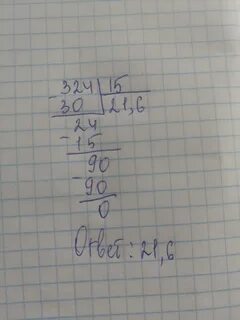 324 15
- 30 21,6
24
- 15
90
- 90
0
Ответ: 21,6